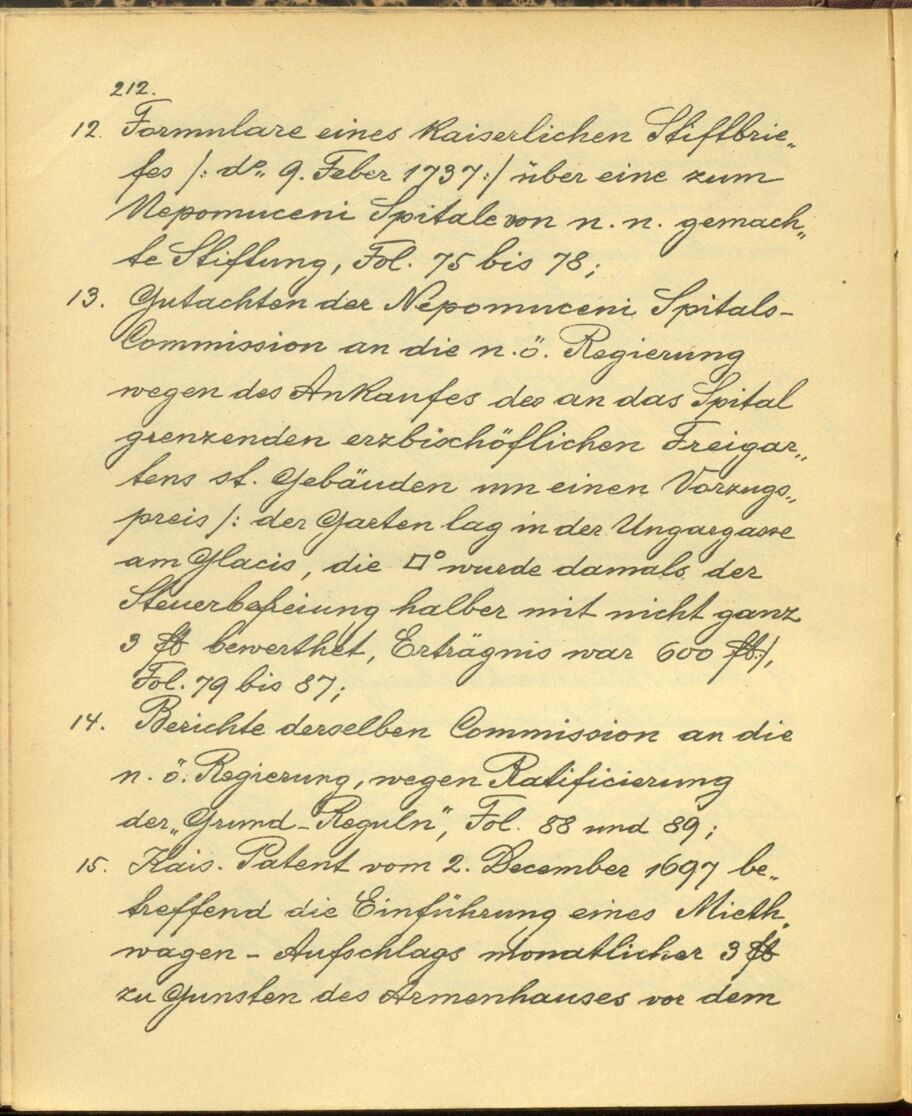 212.
12. Formulare eines Kaiserlichen Stiftbrie„
fes /: do„ 9. Feber 1737:/ über eine zum
Nepomuceni Spitale von n. n. gemach„
te Stiftung, Fol. 75 bis 78;
13. Gutachten der Nepomuceni Spitals-
Commission an die n. ö. Regierung
wegen des Ankaufes des an das Spital
grenzenden erzbischöflichen Freigar„
tens st. Gebäuden um einen Vorzugs„
preis /: der Garten lag in der Ungargasse
am Glacis, die □° wurde damals der
Steuerbefreiung halber mit nicht ganz
3 fl bewerthet, Erträgnis war 600 fl:/,
Fol. 79 bis 87;
14. Berichte derselben Commission an die
n. ö. Regierung, wegen Ratificierung
der „Grund-Reguln", Fol. 88 und 89;
15. Kais. Patent vom 2. December 1697 be„
treffend die Einführung eines Mieth„
wagen-Aufschlags monatlicher 3 fl
zu Gunsten des Armenhauses vor dem